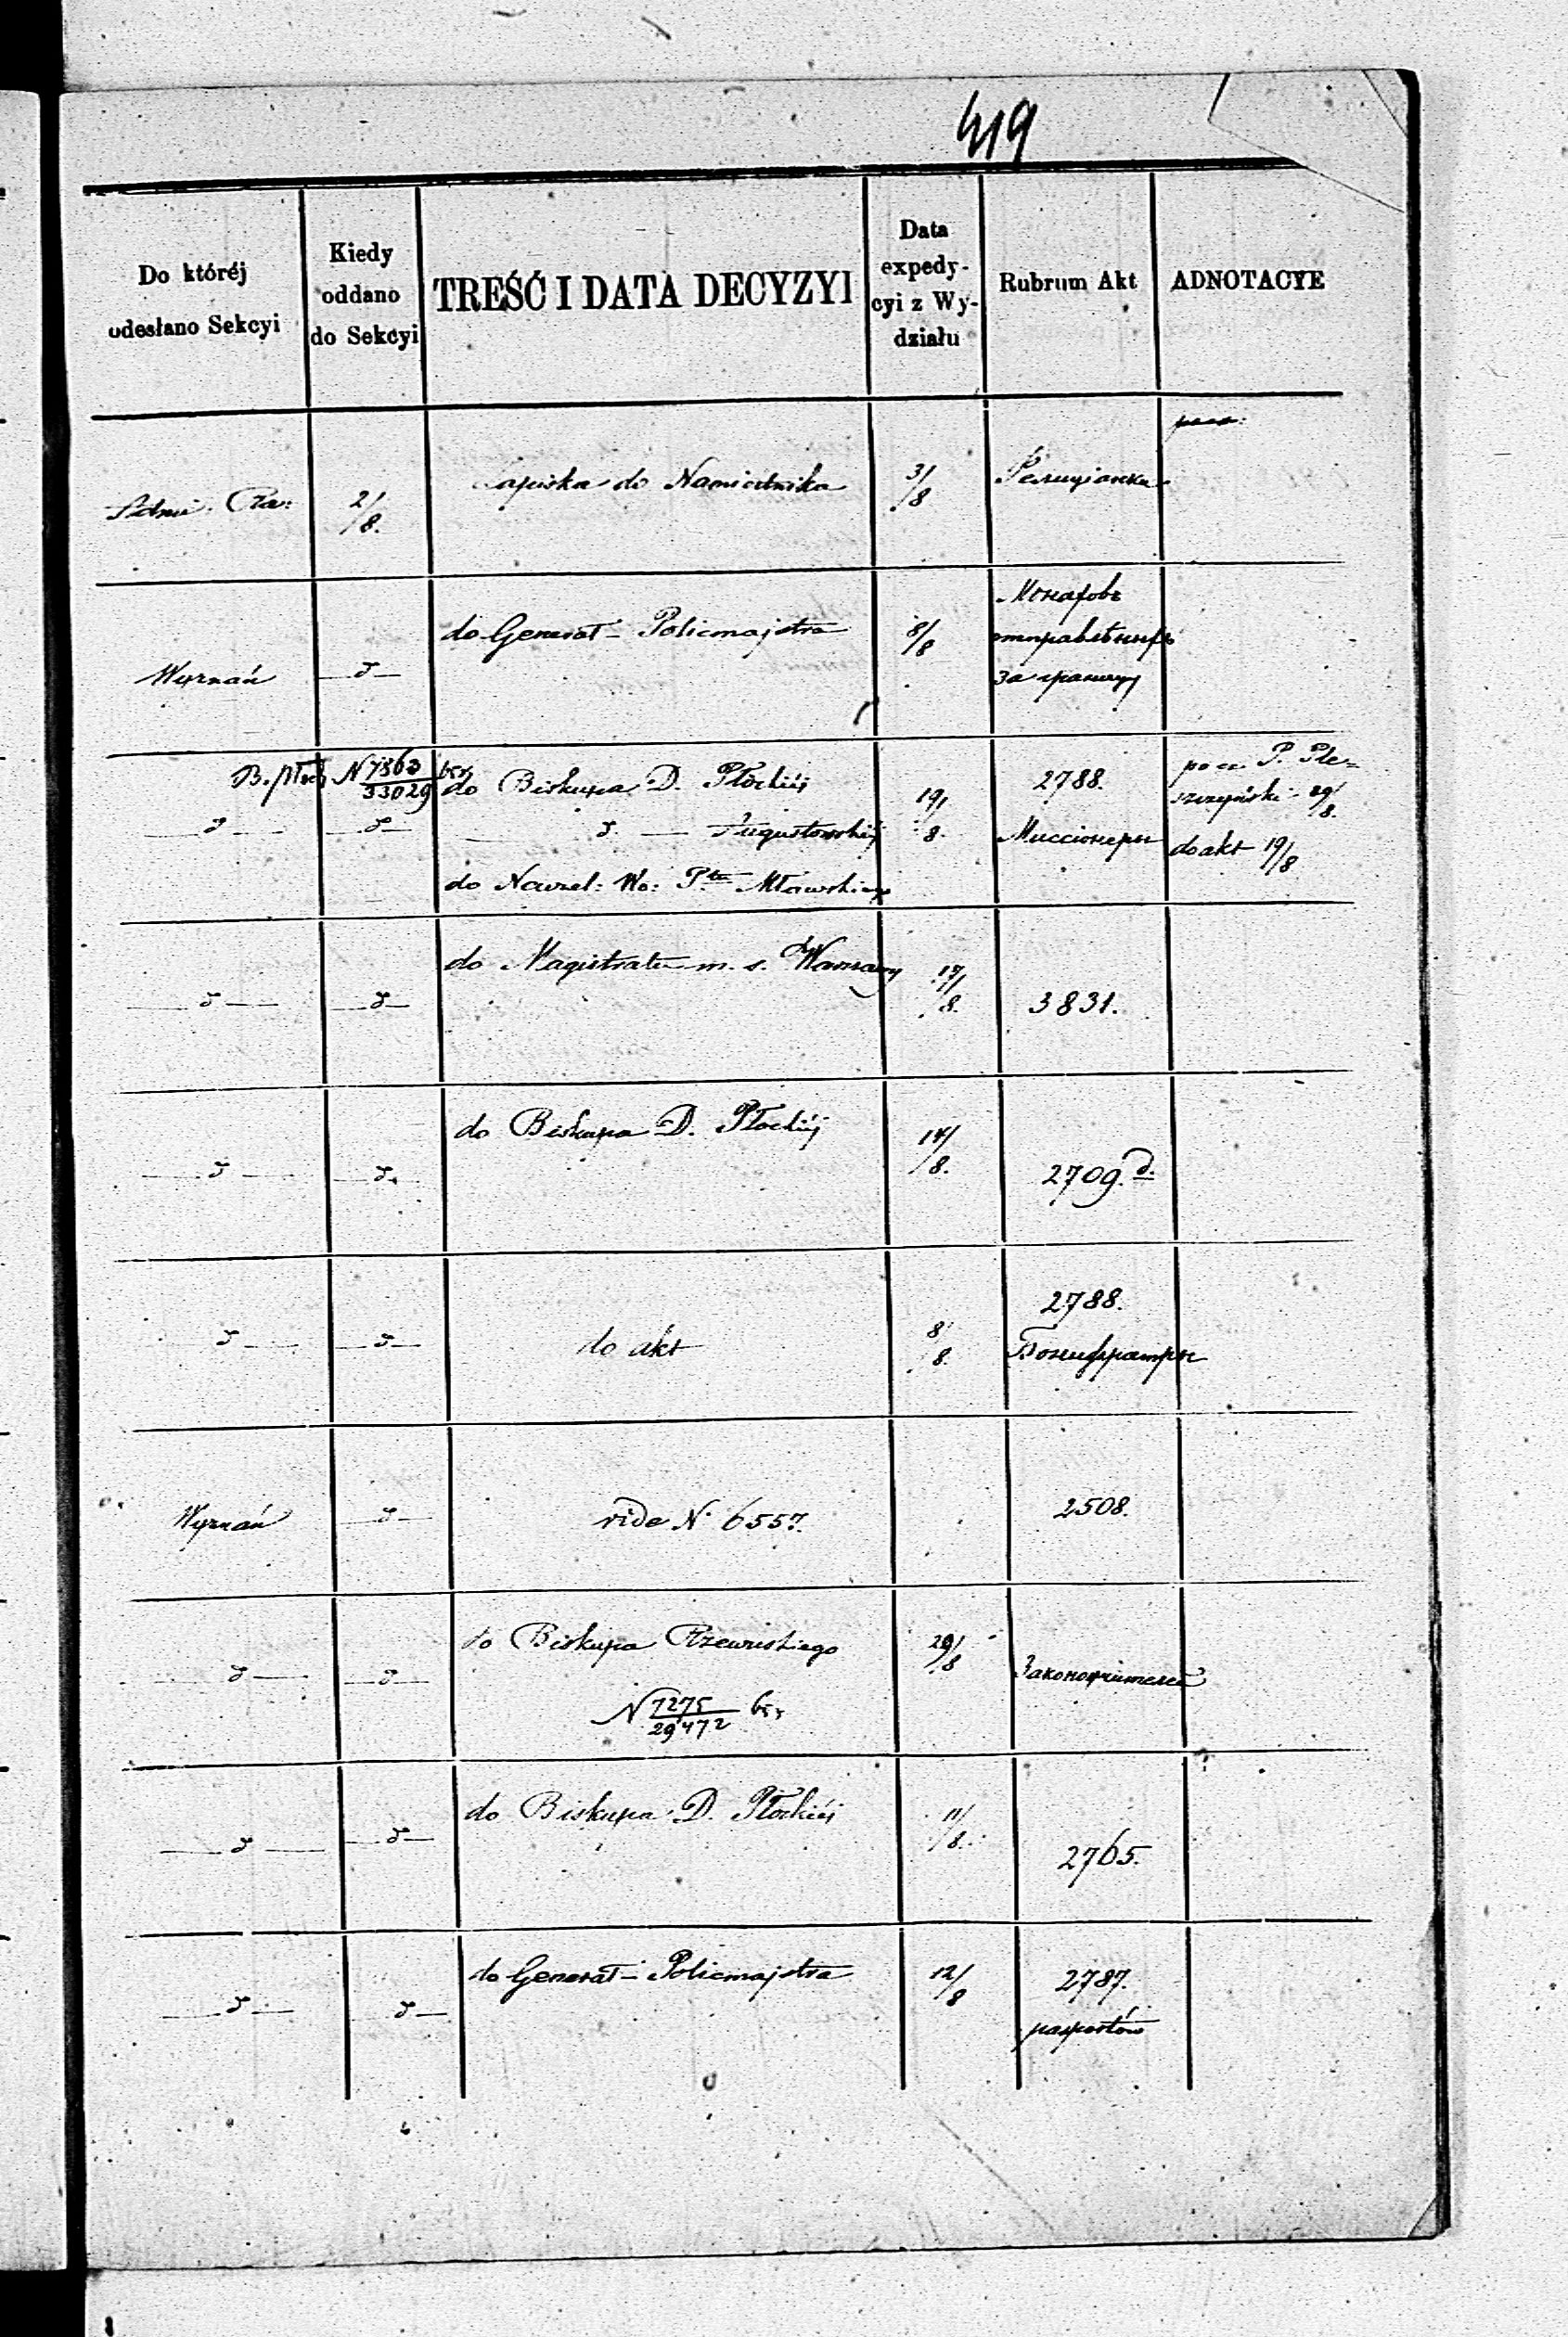 419
Do któréj
odesłano Sekcyi
Kiedy
oddano
do Sekcyi
TREŚĆ I DATA DECYZYI
Data
expedy-
cyi z Wy-
działu
Rubrum Akt
ADNOTACYE
2/8.
Zapiska do Namiestnika
3/8
Wyznań
do Generał-Policmajstra
8/8
Монаховъ
отправлѣнныхъ
за границу
N 7363/33029 bis
do Biskupa D. Płockiéj
19/8.
2788.
Миссіонеры
P. Ple-
szczyński 29/8.
do akt 19/8
d
d
d. Augustowskiéj
do Naczel: Wo: Ptu Mławskiego
d
d
do Magistratu m. s. Warszawy
17/8.
3831.
d
d.
do Biskupa D. Płockiéj
14/8.
2709.d.
d
d
do akt
8/8.
2788.
Бонифратры
Wyznań
d
vide N. 6557.
2508.
d
d
do Biskupa Rzewuskiego
29/8
Законоучителей
N 7275/29472 bis
d
d
do Biskupa D. Płockiéj
11/8.
2765.
d
d
do Generał-Policmajstra
12/8
2787.
pasportów